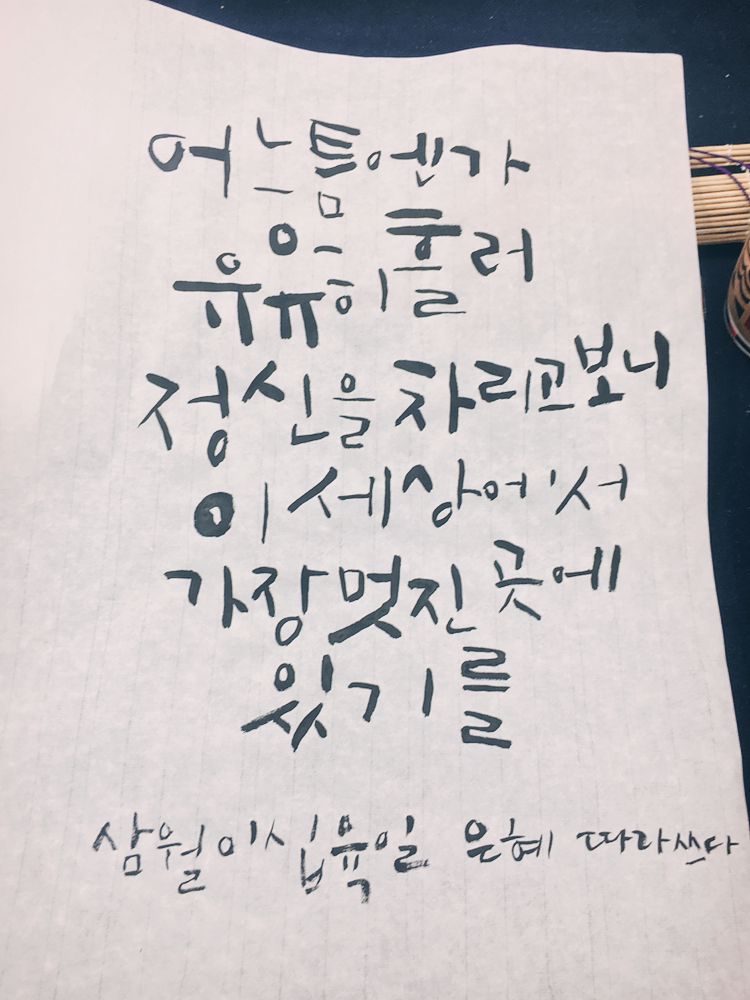 어느틈엔가
유유히 흘러
정신을 차리고보니
이 세상에서
가장 멋진 곳에
있기를
삼월이십육일 은혜 따라쓰다